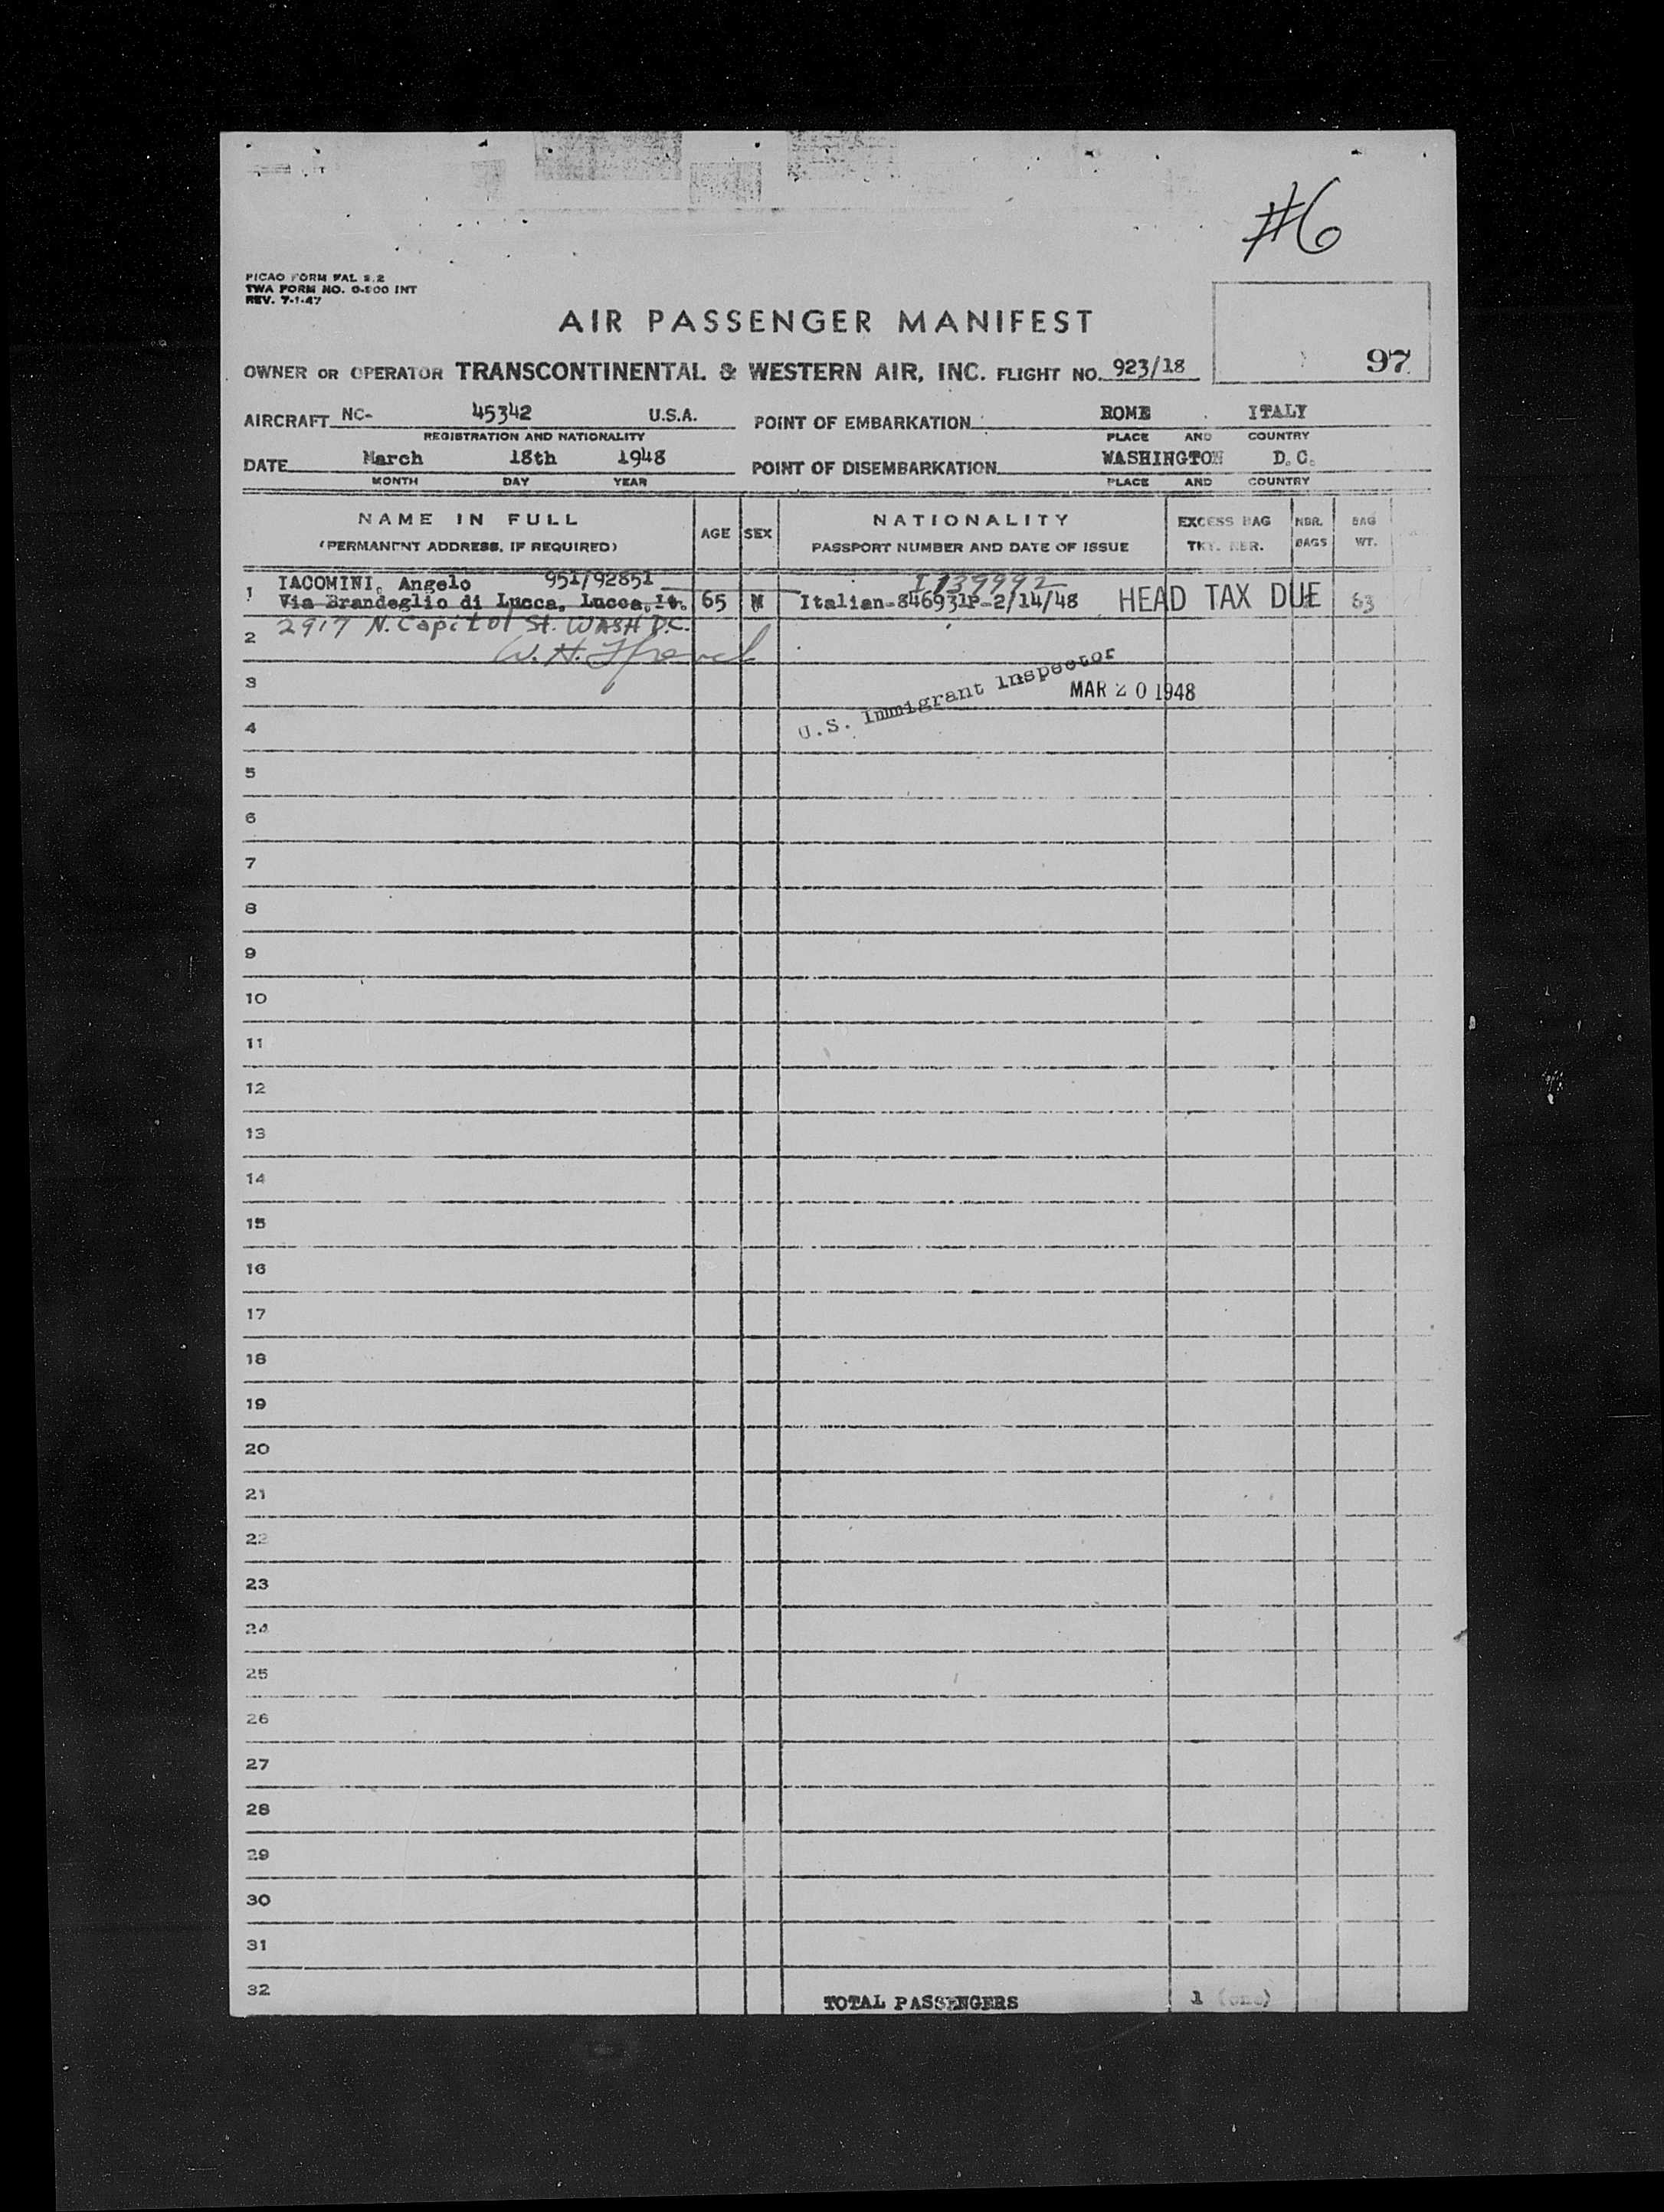 #6
PICAO FORM FAL 2.2
TWA FORM NO. O-800 INT
REV. 7-1-47
AIR PASSENGER MANIFEST
97
OWNER OR OPERATOR TRANSCONTINENTAL & WESTERN AIR, INC. FLIGHT NO. 923/18
AIRCRAFT NC- 45342 U.S.A. POINT OF EMBARKATION ROME ITALY
REGISTRATION AND NATIONALITY PLACE AND COUNTRY
DATE March 18th 1948 POINT OF DISEMBARKATION WASHINGTON D.C.
MONTH DAY YEAR PLACE AND COUNTRY
NAME IN FULL AGE SEX NATIONALITY EXCESS BAG NBR. BAG
(PERMANENT ADDRESS, IF REQUIRED) PASSPORT NUMBER AND DATE OF ISSUE TKT. NBR. BAGS WT.
IACOMINI, Angelo 951/92851 I 139992
1 Via Brandeglio di Lucca, Lucca, It. 65 M Italian-846931P-2/14/48 HEAD TAX DUE 63
2 2917 N. Capitol St. WASH D.C.
W. H.
3 U.S. Immigrant Inspector MAR 20 1948
4
5
6
7
8
9
10
11
12
13
14
15
16
17
18
19
20
21
22
23
24
25
26
27
28
29
30
31
32 TOTAL PASSENGERS 1 (one)